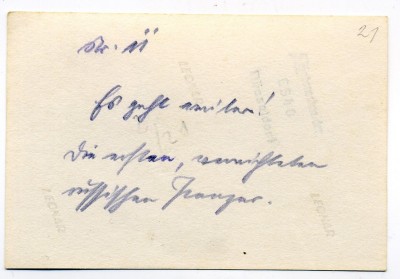 21
Nr. 11
Es geht weiter!
Die ersten, vernichteten
russischen Panzer.
LEONAR
LEONAR